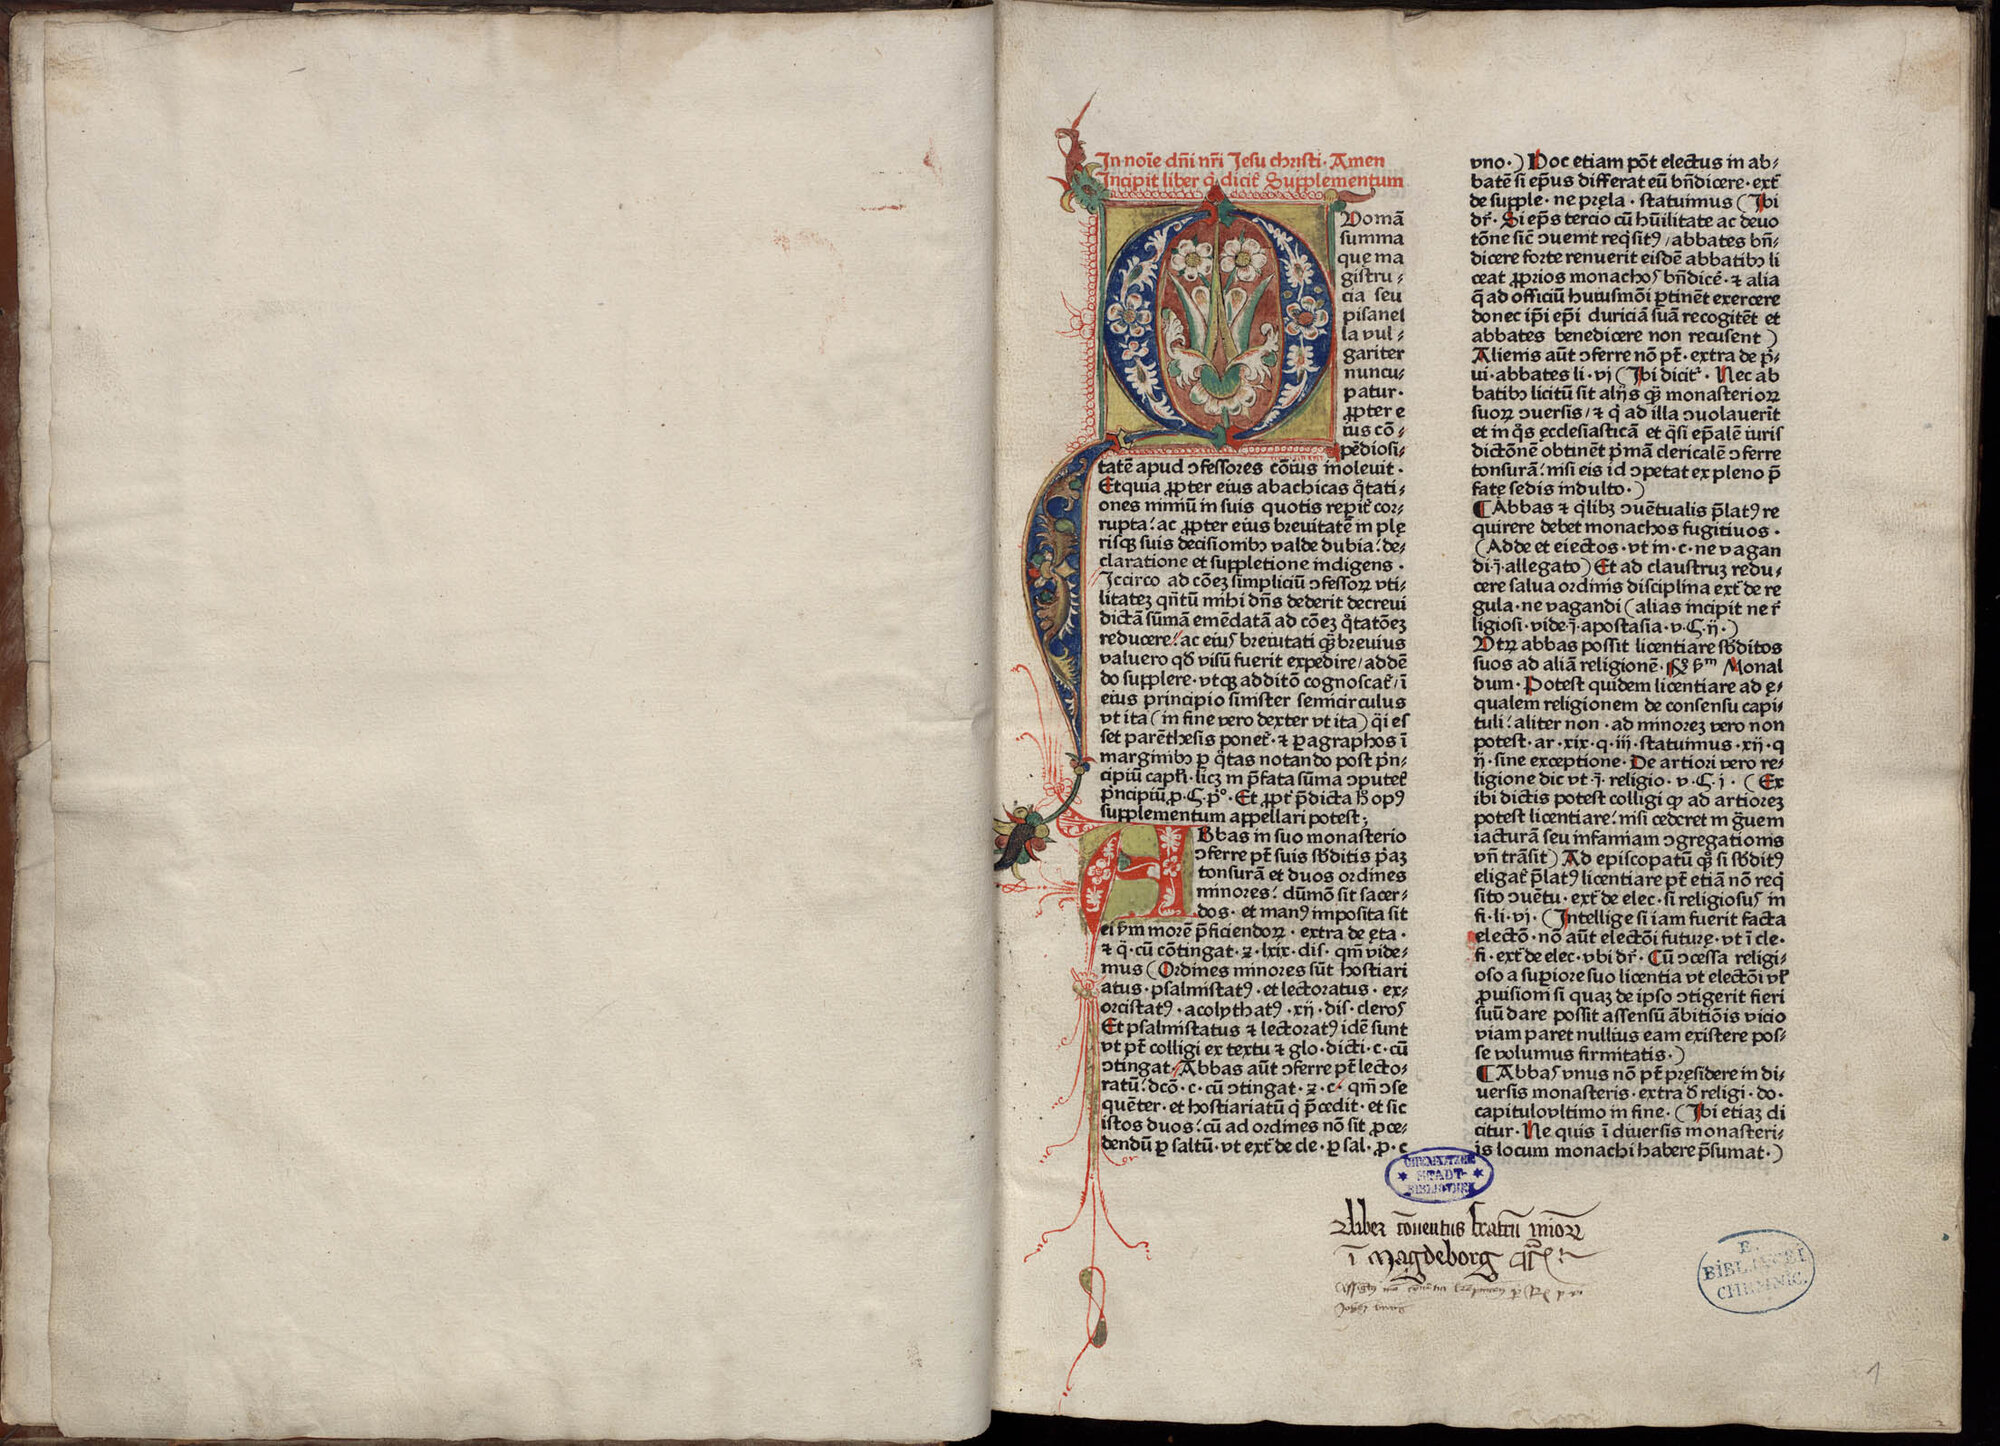 In noīe dn̄i nr̄i Jesu christi · Amen
Incipit liber q̇ dicit᷑ Supplementum
Qvomā
summa
que ma
gistru⸗
cia seu
pisanel
la vul⸗
gariter
nuncu⸗
patur ·
ꝓpter e
ius cō⸗
pēdiosi⸗
tatē apud ↄfessores cōius inoleuit ·
Et quia ꝓpter eius abachicas q̊tati⸗
ones nimiū in suis quotis repit᷑ cor⸗
rupta: ac ꝓpter eius breuitatē in plę
risqꝫ suis decisionibꝰ valde dubia: de⸗
claratione et suppletione indigens ·
Iccirco ad cōeꝫ simpliciū ↄfessoꝝ vti⸗
litateꝫ qn̄tū mihi dn̄s dederit decreui
dictā sūmā emēdatā ad cōeꝫ q̊tatōeꝫ
reducere: ac eius breiutati qꝫ̄ breuius
valuero qđ visū fuerit expedire/ addē
do supplere · vtqꝫ additō cognoscat᷑/ ī
eius principio sinister semicirculus
vt ita ( in fine vero dexter vt ita ) q̄i es
set parēthesis ponet᷑ · ⁊ ꝑagraphos ī
marginibꝰ ꝑ q̊tas notando post pͥn⸗
cipiū capłi · licꝫ in p̄fata sūma ↄputet᷑
pͥncipiū ꝓ · §· p̊ · Et ꝓpt᷑ p̄dicta ħ opꝰ
supplementum appellari potest;
ABbas in suo monasterio
ↄferre pt̄ suis sƀditis pͥaꝫ
tonsurā et duos ordines
minores: dūmō sit sacer⸗
dos · et manꝰ imposita sit
ei ẜm morē p̄ficiendoꝝ · extra de ęta ·
⁊ q̄ · cū cōtingat · ⁊ · lxix · dis · qm̄ vide⸗
mus ( Ordines minores sūt hostiari
atus · psalmistatꝰ · et lectoratus · ex⸗
orcistatꝰ · acolythatꝰ · xij · dis · cleros
Et psalmistatus ⁊ lectoratꝰ idē sunt
vt pt̄ colligi ex textu ⁊ glo · dicti · c · cū
ↄtingat · Abbas aūt ↄferre pt̄ lecto⸗
ratū: dcō · c · cū ↄtingat · ⁊ · c · qm̄ ↄse
quēter · et hostiariatū q̇ p̄cedit · et sic
istos duos: cū ad ordines nō sit ꝓce⸗
dendū ꝑ saltū · vt ext᷑ de cle · ꝑ sal · ꝓ · c
vno · ) Hoc etiam pōt electus in ab⸗
batē si ep̄us differat eū bn̄dicere · ext᷑
de supple · ne pręla · statuimus ( Ibi
dr̄ · Si ep̄s tercio cū hūilitate ac deuo
tōne sic̄ ↄuenit req̇sitꝰ/ abbates bn̄⸗
dicere forte renuerit eisdē abbatibꝰ li
ceat ꝓprios monachos bn̄dicē · ⁊ alia
q̄ ad officiū huiusmōi ꝑtinēt exercere
donec ip̄i ep̄i duriciā suā recogitēt et
abbates benedicere non recusent )
Alienis aūt ↄferre nō pt̄ · extra de pͥ⸗
ui · abbates li · vj ( Ibi dicit᷑ · Nec ab
batibꝰ licitū sit alijs qꝫ̄ monasterioꝝ
suoꝝ ↄuersis/ ⁊ q̇ ad illa ↄuolauerīt
et in q̇s ęcclesiasticā et q̄si ep̄alē iuris
dictōnē obtinēt pͥmā clericalē ↄferre
tonsurā: nisi eis id ↄpetat ex pleno p̄
fate sedis indulto · )
¶ Abbas ⁊ q̇libꝫ ↄuētualis p̄latꝰ re
quirere debet monachos fugitiuos ·
( Adde et eiectos · vt in · c · ne vagan
di · j̄ · allegato ) Et ad claustruꝫ redu⸗
cere salua ordinis disciplina ext᷑ de re
gula · ne vagandi ( alias incipit ne r̄
ligiosi · vide · j̄ · apostasia · v · § · ij · )
Vtꝝ abbas possit licentiare sƀditos
suos ad aliā religionē · ẜm Monal
dum · Potest quidem licentiare ad ę⸗
qualem religionem de consensu capi⸗
tuli: aliter non · ad minoreꝫ vero non
potest · ar · xix · q · iij · statuimus · xij · q
ij · sine exceptione · De artiori vero re⸗
ligione dic vt · j̄ · religio · v · § · j · ( Ex
ibi dictis potest colligi ꝙ ad artioreꝫ
potest licentiare: nisi cederet in g̊uem
iacturā seu infamiam ↄgregationis
vn̄ trāsit ) Ad episcopatū qꝫ̄ si sƀditꝰ
eligat᷑ p̄latꝰ licentiare pt̄ etiā nō req̇
sito ↄuētu · ext᷑ de elec · si religiosus in
fi · li · vj · ( Intellige si iam fuerit facta
electō · nō aūt electōi futurę · vt ī cle ·
fi · ext᷑ de elec · vbi dr̄ · Cū ↄcessa religi⸗
oso a suꝑiore suo licentia vt electōi vł
ꝓuisioni si quaꝫ de ipso ↄtigerit fieri
suū dare possit assensū ābitiōis vicio
viam paret nullius eam existere pos⸗
se volumus firmitatis · )
¶ Abbas vnus nō pt̄ pręsidere in di⸗
uersis monasteris · extra đ religi · do ·
capitulo vltimo in fine · ( Ibi etiaꝫ di
citur · Ne quis ī diuersis monasteri⸗
is locum monachi habere p̄sumat · )
CHEMNITZER
STADT-
BIBLIOTHEK
Liber cōuentus fratrū mīoꝝ
ī Magdeborg
E.
BIBLIOTHEC̄
CHEMNIC.
1